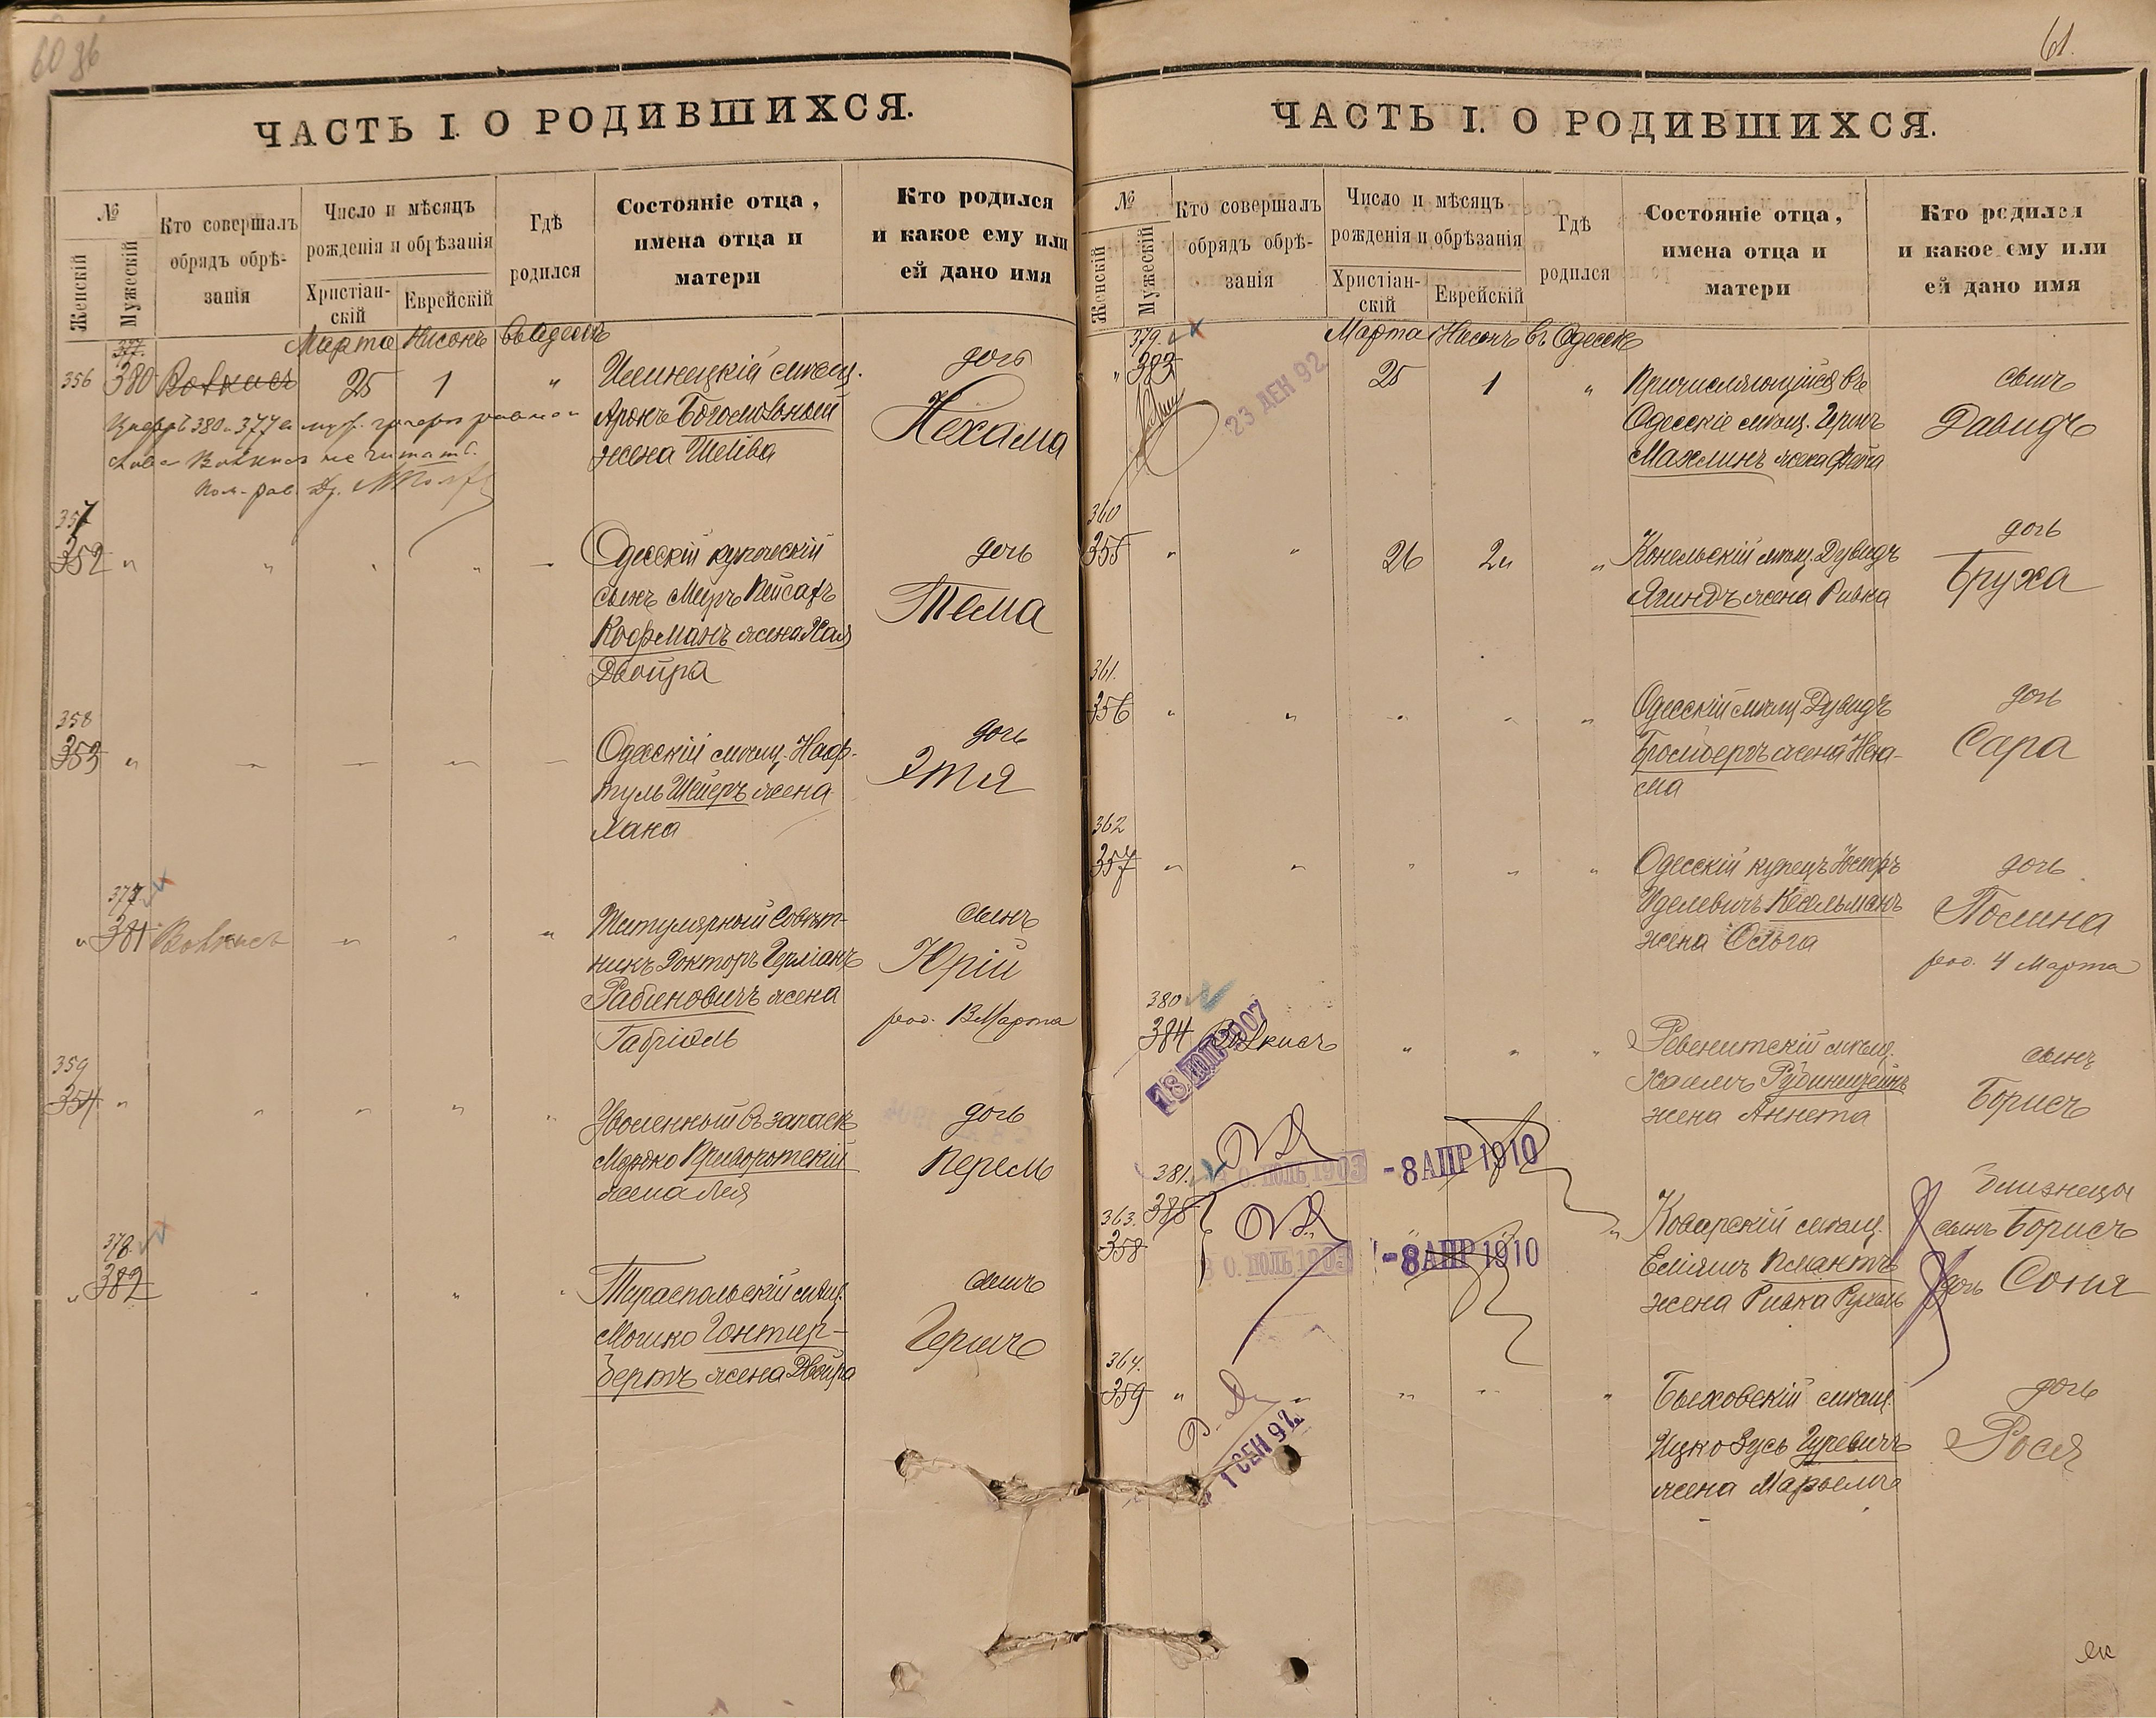 60 об
ЧАСТЬ I. О РОДИВШИХСЯ.
№
Женскій
Мужескій
Кто совершалъ
обрядъ обрѣ-
занія
Число и мѣсяцъ
рожденія и обрѣзанія
Христіан-
скій
Еврейскій
Гдѣ
родился
Состояніе отца,
имена отца и
матери
Кто родился
и какое ему или
ей дано имя
Марта Нисонъ въ Одессѣ
377.
356 380 Вовкисъ 25 1 "
Илинецкій мѣщ.
Аронъ Богомольный
жена Шейва
дочь
Нехама
Цифръ 380 и 377 въ муж.
слово Вовкисъ не читать.
357
352 "
Одесскій купеческій
сынъ Меиръ Пейсахъ
Кофманъ жена Хая
Двойра
дочь
Тема
358
353 "
Одесскій мѣщ. Наф-
туль Шейеръ жена
Хана
дочь
Этя
377
" 381 Вовкисъ " " "
Титулярный Совѣт-
никъ Докторъ Германъ
Рабиновичъ жена
Габріэль
сынъ
Юрій
род. 13 Марта
359
354 " " " " "
Уволенный въ запасъ
Мордко Приворотскій
жена Лея
дочь
Перель
378.
" 382 " " " "
Тираспольскій мѣщ.
Мошко Гонтир-
бертъ жена Двойра
сынъ
Гершъ
61.
ЧАСТЬ I. О РОДИВШИХСЯ.
№
Женскій
Мужескій
Кто совершалъ
обрядъ обрѣ-
занія
Число и мѣсяцъ
рожденія и обрѣзанія
Христіан-
скій
Еврейскій
Гдѣ
родился
Состояніе отца,
имена отца и
матери
Кто родился
и какое ему или
ей дано имя
Марта Нисонъ въ Одессѣ
379.
" 383 25 1 "
23 ДЕК 92
Причисляющійся въ
Одесскіе мѣщ. Гершъ
Махлинъ жена Фейга
сынъ
Давидъ
360
355 " " 26 2 "
Конельскій мѣщ. Дувидъ
Ягиндъ жена Ривка
дочь
Бруха
361.
356 " " " " "
Одесскій мѣщ Дувидъ
Бройбергъ жена Неха-
ма
дочь
Сара
362
357 " " " " "
Одесскій купецъ Іосифъ
Иделевичъ Кесельманъ
жена Ольга
дочь
Полина
род. 4 Марта
380
384 Вовкисъ " " "
18 ІЮЛ 1907
мѣщ.
Хаимъ Рубинштейнъ
жена Аннета
сынъ
Борисъ
381.
385
363.
358
30. ІЮЛЬ 1903 - 8 АПР 1910
30. ІЮЛЬ 1903 - 8 АПР 1910
Коварскій мѣщ.
жена Ривка Рухель
близнецы
сынъ Борисъ
дочь Соня
364.
359 " " " " "
1 СЕН 92
Быховскій мѣщ.
Ицко Зусь Гуревичъ
жена Марьемъ
дочь
Рося